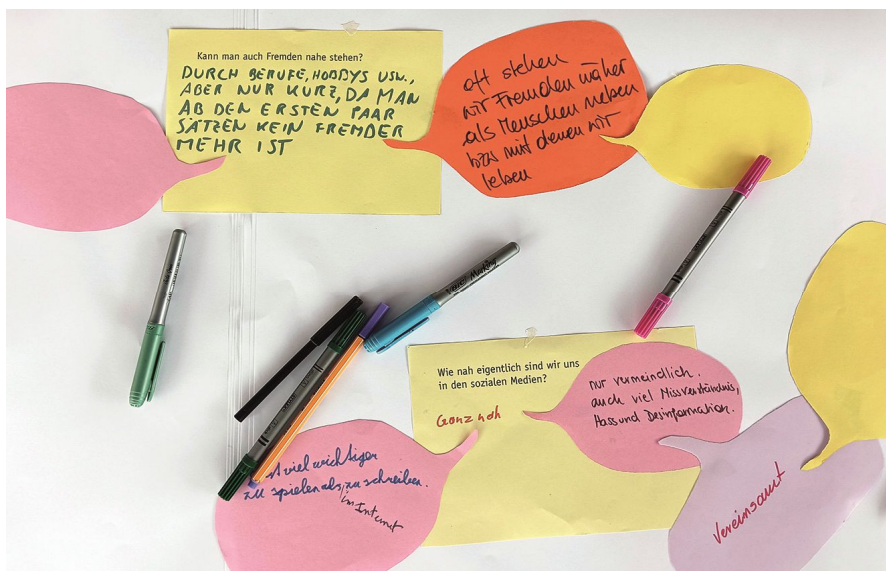 Kann man auch Fremden nahe stehen?
DURCH BERUFE, HOBBYS USW.,
ABER NUR KURZ, DA MAN
AB DEN ERSTEN PAAR
SÄTZEN KEIN FREMDER
MEHR IST
oft stehen
wir Fremden näher
als Menschen neben
bzw mit denen wir
leben
Wie nah eigentlich sind wir uns
in den sozialen Medien?
Ganz nah
nur vermeindlich.
auch viel Missverständnis,
Hass und Desinformation.
viel wichtiger
zu spielen als zu schreiben.
im Internet
Vereinsamt